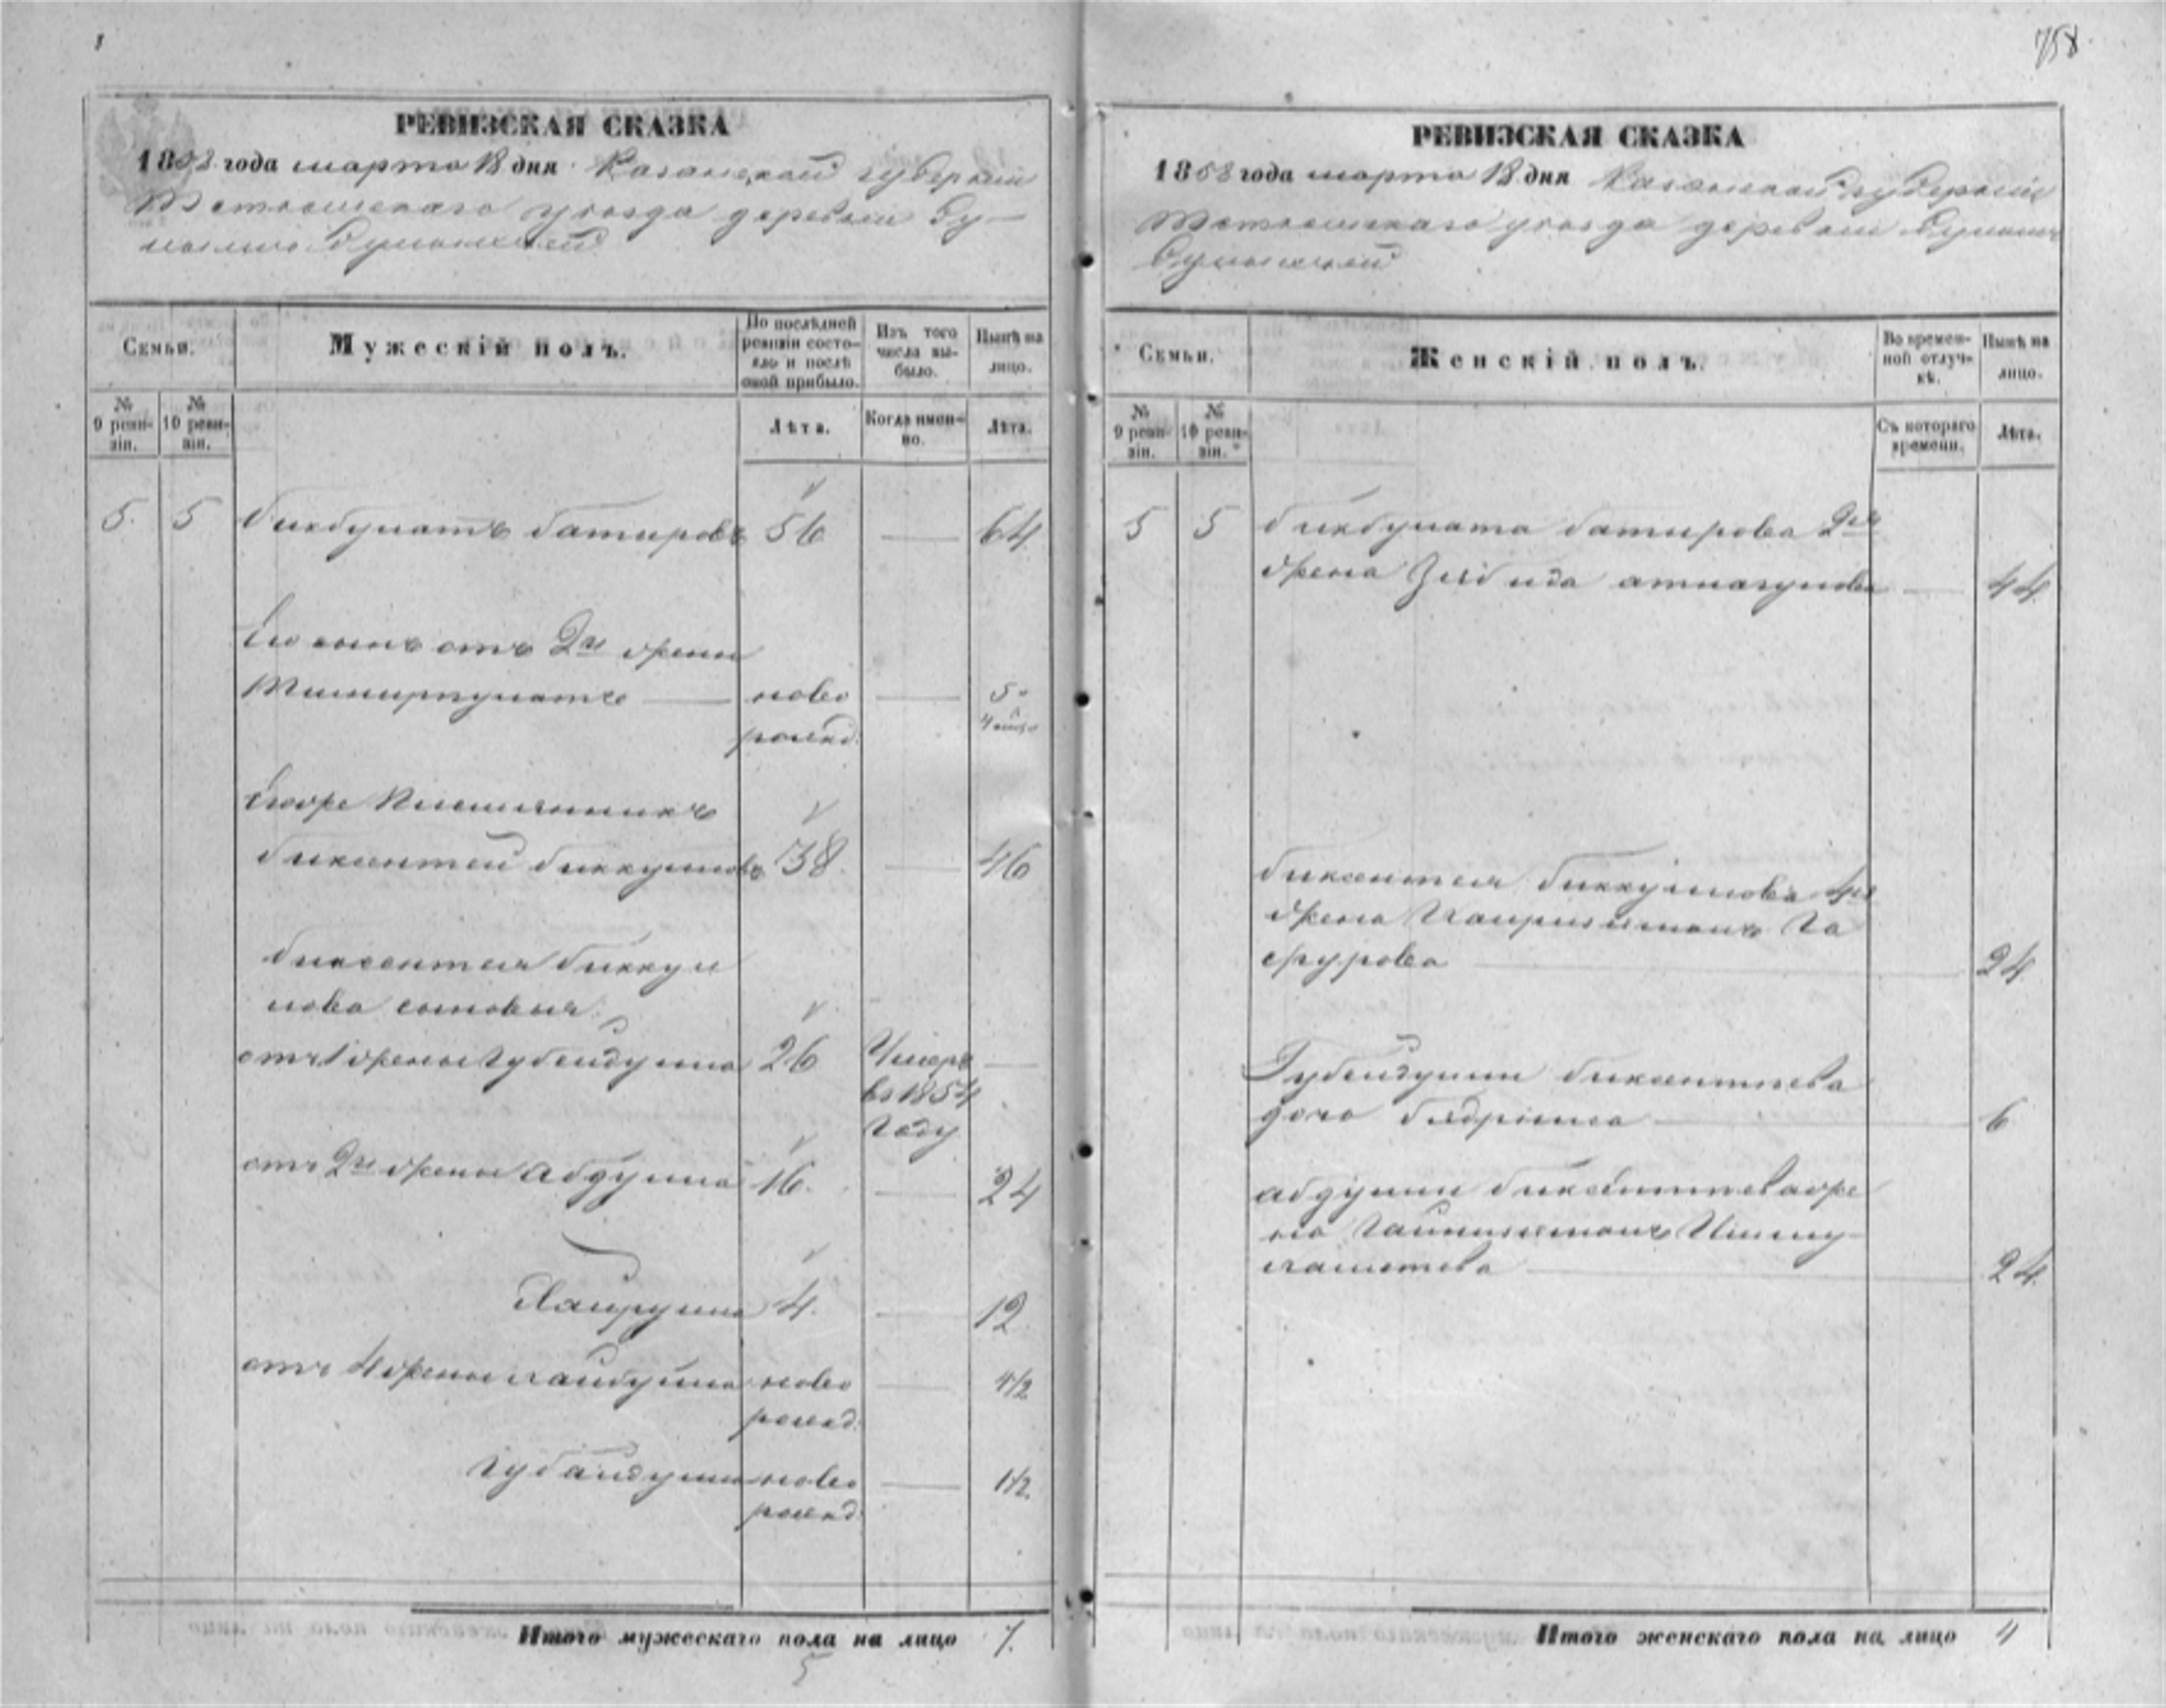 758
РЕВИЗСКАЯ СКАЗКА
1858 года марта 18 дня Казанской губернии
Тетюшскаго уезда деревни
Семьи.
Мужескій полъ.
По послѣдней ревизіи состояло и послѣ оной прибыло.
Изъ того числа выбыло.
Нынѣ на лицо.
№ 9 ревизіи.
№ 10 ревизіи.
Лѣта.
Когда именно.
Лѣта.
5. 5 бикбулатъ батировъ 56 64
Его сынъ отъ 2й жены
Тимирпулатъ ново 5 и
рожд. 4 мѣс.
Егоже племянникъ
биксентей биккуловъ 38 46
биксентея биккул
лова сыновья:
отъ 1 жены Губейдулла 26 Умеръ
въ 1854
году
отъ 2й жены абдулла 16. 24
Хайрулла 4. 12
отъ 4 жены гайбулла ново 4 1/2
рожд.
Губайдулла ново 1 1/2
рожд.
Итого мужескаго пола на лицо 7.
5
РЕВИЗСКАЯ СКАЗКА
1858 года марта 18 дня Казанской губерніи
Тетюшскаго уезда деревни
Семьи.
Женскій полъ.
Во временной отлучкѣ.
Нынѣ на лицо.
№ 9 ревизіи.
№ 10 ревизіи.
Съ котораго времени.
Лѣта.
5 5 бикбулата батирова 2я
жена Зюбида 44
биксентея биккулова 4я
жена Га
фурова 24
Губейдуллы биксентеева
дочь 6
абдуллы биксентеева же
на
24
Итого женскаго пола на лицо 4